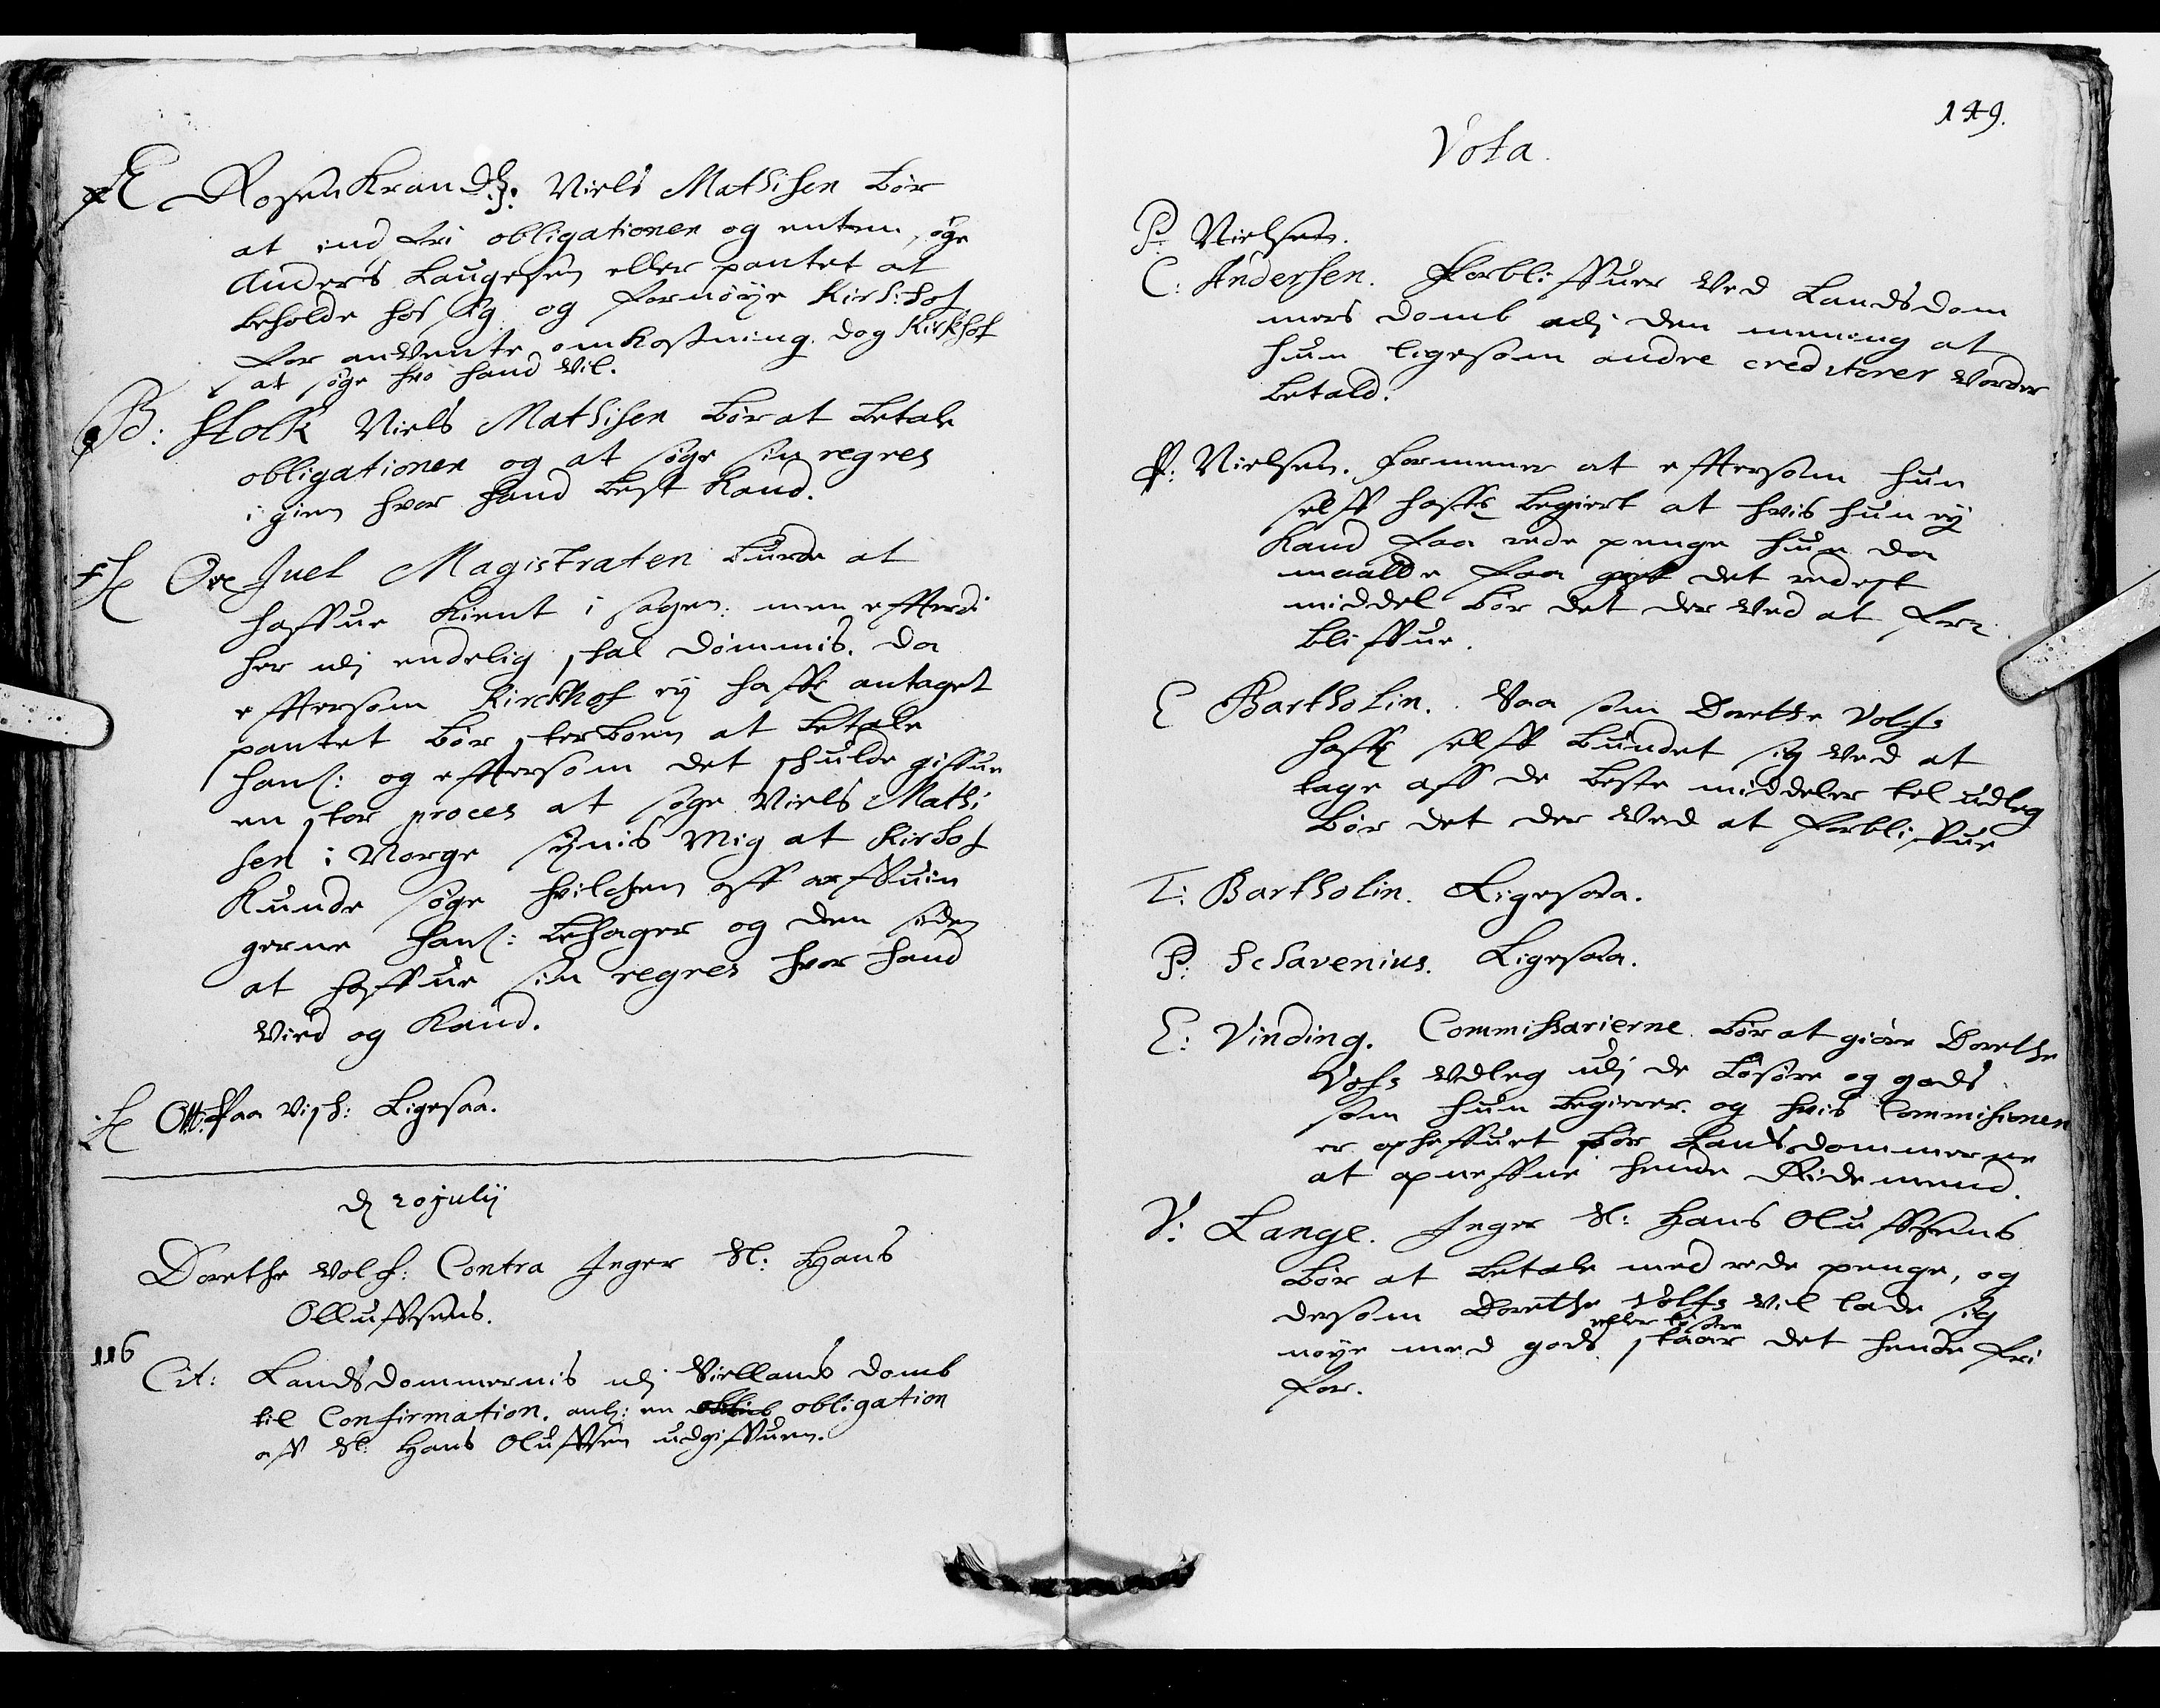 RosenKrandtz: Niels Mathisen bør
at ind fri obligationen og enten søge
Anders Laugesen eller pantet at
beholde hos sig og fornøye Kirchof
for anvente omkostning. dog Kirkhof
at søge hvo hand vil.
B: Stolk Niels Mathisen bør at betale
obligationen og at søge sin regres
igien hvor hand best kand.
Ove Juel Magistraten burde at
haffue kient i sagen. men efterdi
her udj endelig skal dømmis. da
eftersom Kirckhof ey haffr antaget
pantet bør sterboen at betale
hans: og eftersom det skulde giffue
en stor proces at søge Niels Mathi
sen i Norge synis mig at Kirkof
kunde søge hvilchen aff arffuin
gerne hans: behager og den siden
at haffue sin regres hvor hand
vied og kand.
Ott: Paa Visch: Ligesaa.
d 20 julij
Dorethe Volf: Contra Inger Sl: Hans
Olluffsens.
116
Cit: Landsdommernis udj Siellands domb
til Confirmation. anl: en obligation
aff Sl: Hans Oluffsen udgiffuen.
149.
Vota.
P. Nielsen.
C: Andersen. forbliffuer ved Landsdom
mers domb udj den mening at
hun ligesom andre creditorer vorder
betald.
P: Nielsen. formener at eftersom hun
selff haffr begiert at hvis hun ey
kand faa rede penge hun da
maatte faa det redest
middel bør det der ved at for
bliffue.
C Bartholin. Saa som Dorethe Volfs
haffr selff bundet sig ved at
tage aff de beste middeler til udleg
bør det der ved at forbliffue
T: Bartholin. Ligesaa.
P: Schavenius. Ligesaa.
E: Vinding. Commissarierne bør at giøre Dorethe
Vofs udleg udj de løsøre og gods
som hun begierer. og hvis Commissionen
er opheffuet bør Landsdommerne
at opneffne hende Ridemend.
V: Lange. Inger Sl: Hans Oluffsens
bør at betale med rede penge, og
dersom Dorethe Volfs vil lade sig
nøye med gods eller løsøre staar det hende fri
for.